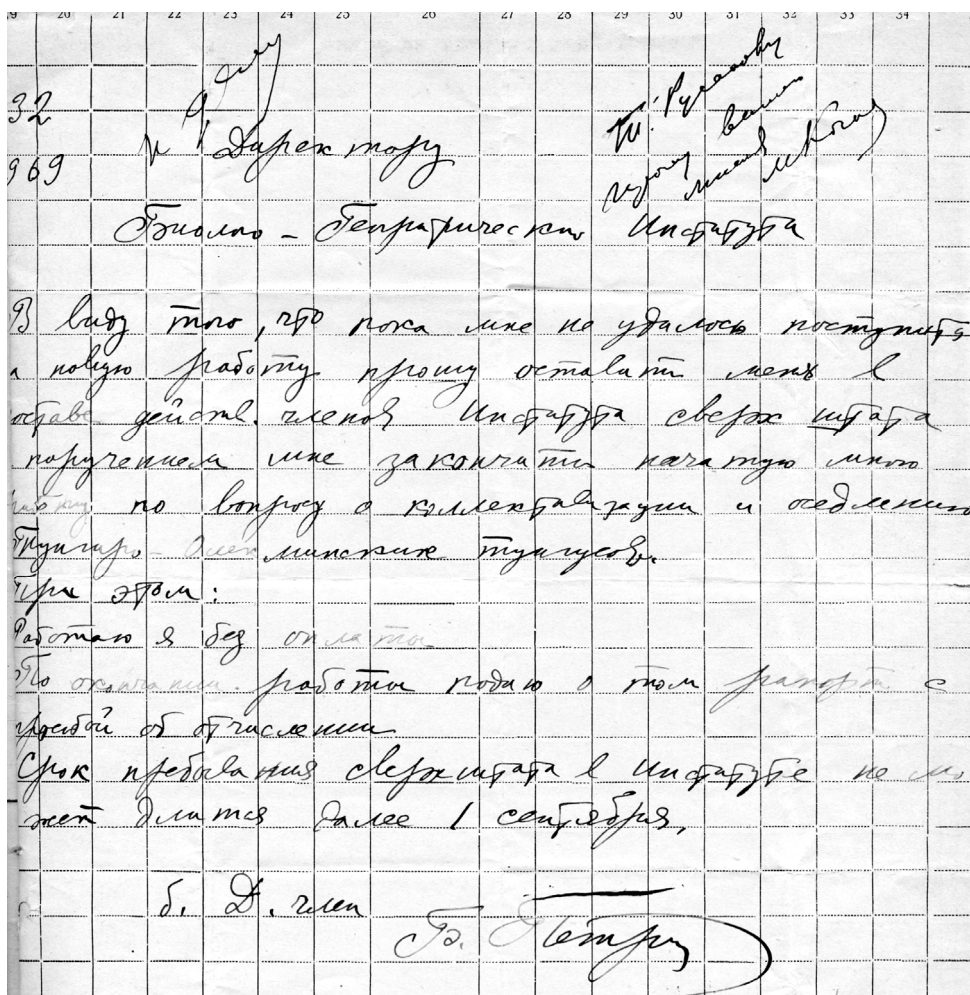 20 21 22 23 24 25 26 27 28 29 30 31 32 33 34
к делу
32
969
Директору
Биолого-Географическ. Института
В виду того, что пока мне не удалось поступить
новую работу прошу оставить меня в
составе действ. членов Института сверх штата
поручением мне закончить начатую мною
работу по вопросу о коллективизации и оседлении
Тунгиро-Олекминских тунгусов.
При этом:
Работаю я без оплаты
По окончании работы подаю о том рапорт с
просьбой об отчислении
Срок пребывания сверх штата в Институте не мо
жет длится далее 1 сентября.
б. Д. член
Б. Петри